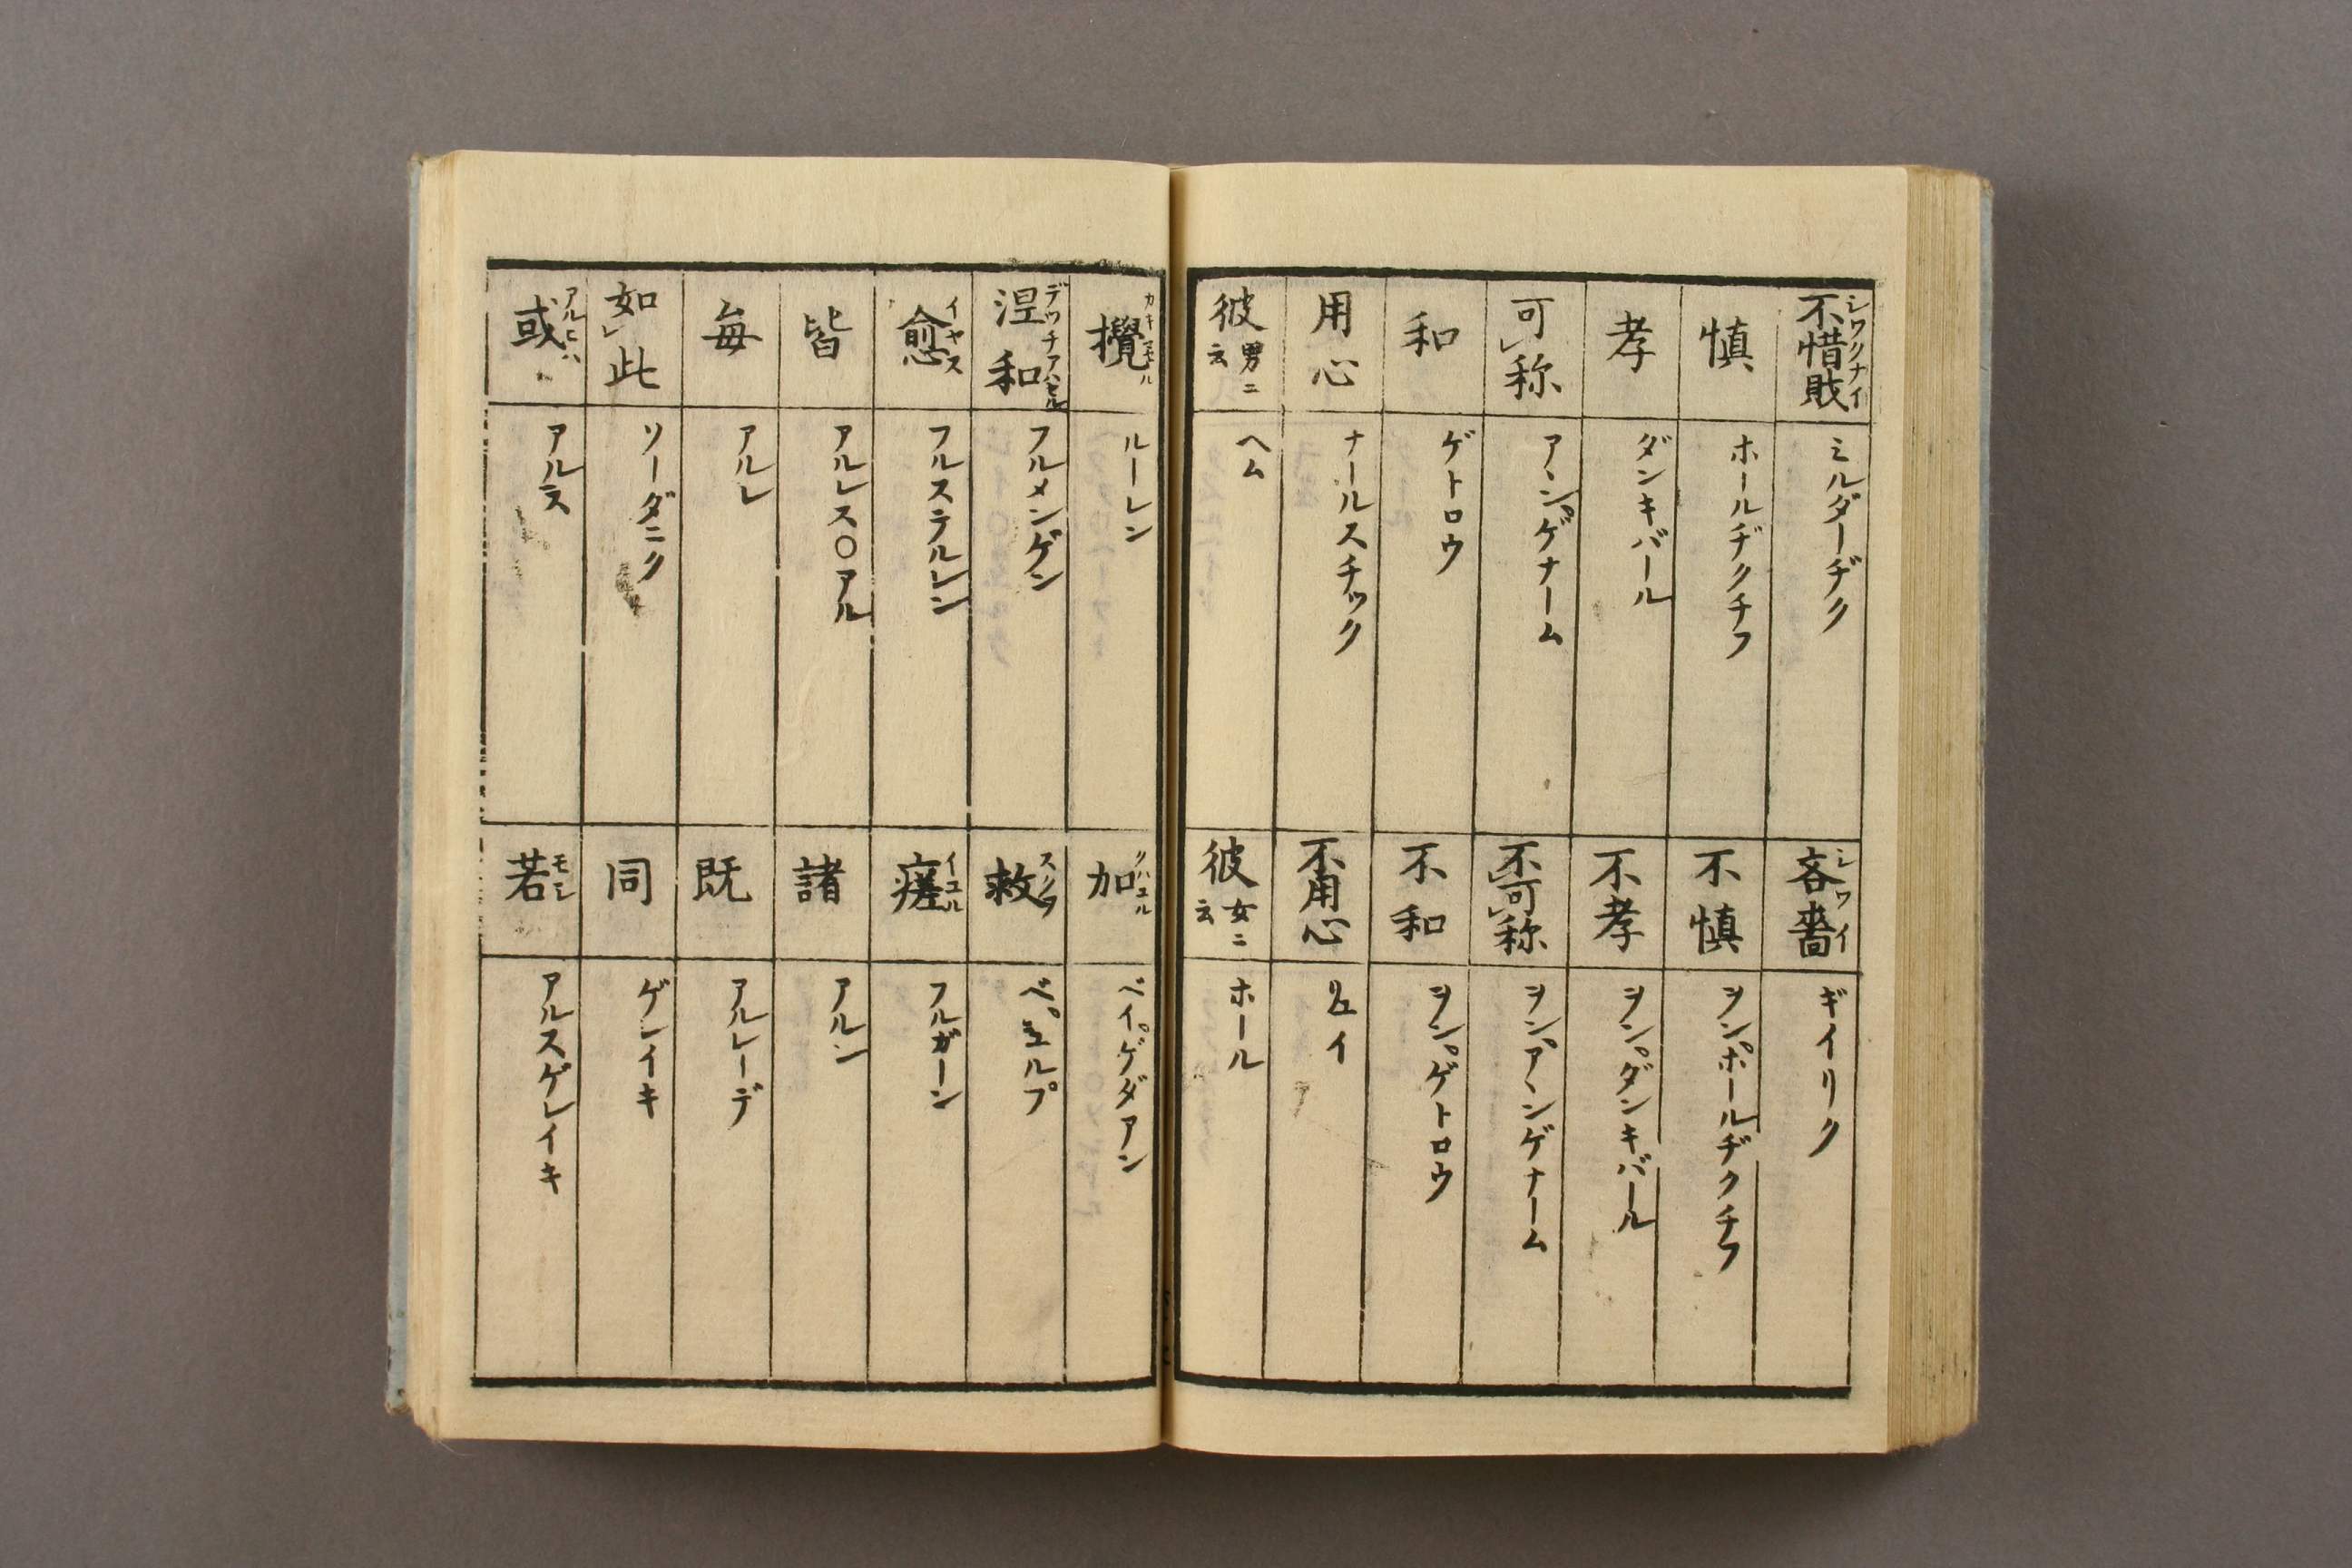 不惜敗 シワクナイ
ミルダーヂク
慎
ホールヂクチフ
孝
ダンキバール
可レ称
アヽンゲナーム
和
ゲトロウ
用心
ナールスチック
彼 男ニ云
ヘム
吝嗇 シワイ
ギイリク
不慎
ヲンホールヂクチフ
不孝
ヲンダンキバール
不可レ称
ヲンアヽンゲナーム
不和
ヲンゲトロウ
不用心
リュイ
彼 女ニ云
ホール
攪
ルーレン
涅和 デツチアハセル
フルメンゲン
愈 イヤス
フルステルレン
皆
アルレス〇アル
毎
アルレ
如レ此
ソーダニク
或 アルヒハ
アルス
加 クハエル
ベイゲダアン
救 スクフ
ベヱルプ
瘥 イユル
フルガーン
諸
アルン
既
アルレーデ
同
ゲレイキ
若 モシ
アルスゲレイキ